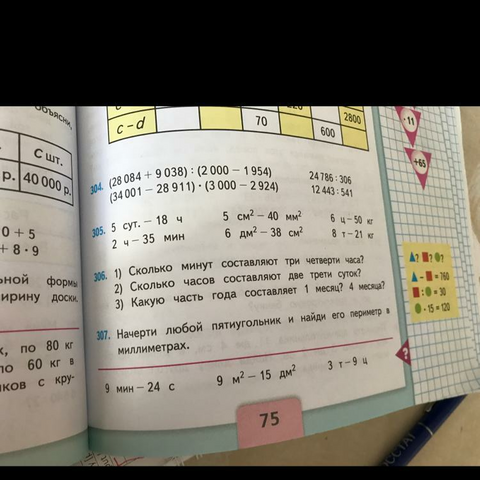 объясни.
С шт.
р. 40 000 р.
0 + 5
+ 8 · 9
льной формы
ирину доски.
к, по 80 кг
по 60 кг в
иков с кру-
c – d
70
600
2800
· 11
+65
304. (28 084 + 9 038) : (2 000 – 1 954) 24 786 : 306
(34 001 – 28 911) · (3 000 – 2 924) 12 443 : 541
305. 5 сут. – 18 ч 5 см² – 40 мм² 6 ц – 50 кг
2 ч – 35 мин 6 дм² – 38 см² 8 т – 21 кг
306. 1) Сколько минут составляют три четверти часа?
2) Сколько часов составляют две трети суток?
3) Какую часть года составляет 1 месяц? 4 месяца?
307. Начерти любой пятиугольник и найди его периметр в
миллиметрах.
9 мин – 24 с 9 м² – 15 дм² 3 т – 9 ц
75
? ? ?
– = 760
: = 30
· 15 = 120
?